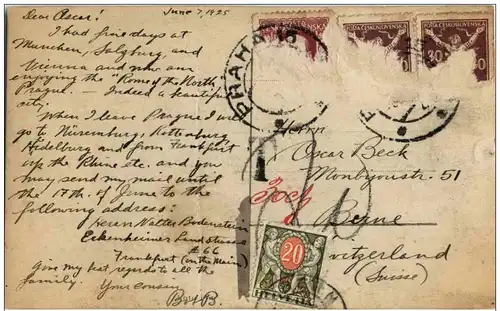 June 7, 1925
Dear Oscar!
I had fine days at
Munchen, Salzburg and
Vienna and now am
enjoying the "Rome of the North"
Prague. — Indeed a beautiful
city.
When I leave Prague I will
go to Nürenburg, Rottenburg
Hidelburg and from Frankfurt
up the Rhine etc. and you
may send my mail until
the 17th. of June to the
following address:
Herrn Walter Bodenstein
Eckenheimer Landstrasse
#66
Frankfurt (on the Main)
Give my best regards to all the
family. Your cousin,
POŠTA ČESKOSLOVENSKÁ
POŠTA ČESKOSLOVENSKÁ
30
PRAHA
Herrn
Oscar Beck
Monbijoustr. 51
Berne
Switzerland
(Suisse)
1
20
HELVETIA